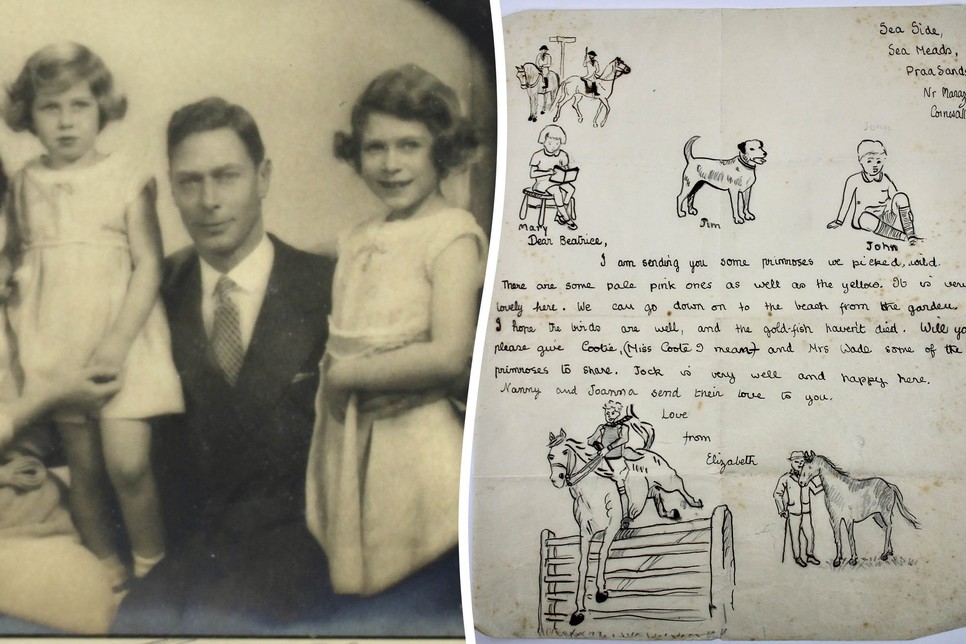 Sea Side,
Sea Meads,
Praa Sands
Nr Maraz
Cornwall
John
Mary
Jim
John
Dear Beatrice,
I am sending you some primroses we picked, wild.
There are some pale pink ones as well as the yellow. It is very
lovely here. We can go down on to the beach from the garden
I hope the birds are well, and the gold-fish haven't died. Will yo
please give Cootie, (Miss Coote I mean) and Mrs Wade some of the
primroses to share. Jock is very well and happy here.
Nanny and Joanna send their love to you.
Love
from
Elizabeth